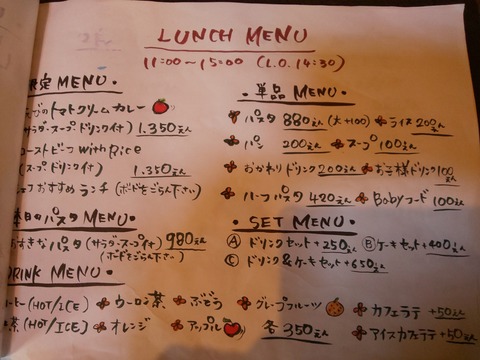 LUNCH MENU
11:00〜15:00 (L.O. 14:30)
定 MENU・
びのトマトクリームカレー
(サラダ・スープ・ドリンク付) 1.350えん
ーストビーフ with Rice
(スープ ドリンク付) 1.350えん
おすすめ ランチ (ボードをごらん下さい)
本日のパスタ MENU・
おすきなパスタ (サラダ・スープ付) 980えん
(ボードをごらん下さい)
DRINK MENU・
ーヒー (HOT/ICE) ウーロン茶 ぶどう グレープフルーツ カフェラテ +50えん
茶 (HOT/ICE) オレンジ アップル 各350えん アイスカフェラテ +50えん
・単品 MENU・
パスタ 880えん (大+100) ライス 200えん
パン 200えん スープ 100えん
おかわりドリンク 200えん お子様ドリンク 100えん
ハーフパスタ 480えん Babyフード 100えん
・SET MENU・
Ⓐ ドリンクセット +250えん Ⓑ ケーキセット +400えん
Ⓒ ドリンク&ケーキセット +650えん